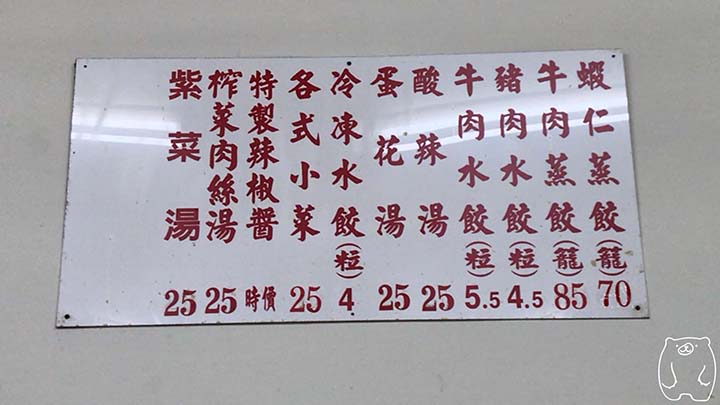 蝦仁蒸餃(籠)70
牛肉蒸餃(籠)85
豬肉水餃(粒)4.5
牛肉水餃(粒)5.5
酸辣湯25
蛋花湯25
冷凍水餃(粒)4
各式小菜25
特製辣椒醬時價
榨菜肉絲湯25
紫菜湯25